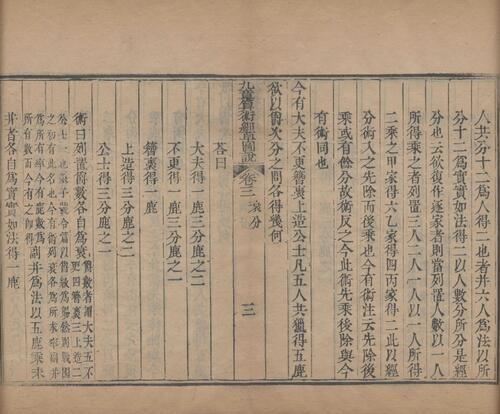 人共分十二爲人得二也者并六人爲法以所
分十二爲實實如法得二以人數分所分是經
分也云欲復作逐家者則當列置人數以一人
所得乘之者列置三人二人一人以一人所得
二乘之甲家得六乙家得四丙家得二此以經
分術入之先除而後乘也今有術注云先除後
乘或有餘分故術反之今此術先乘後除與今
有術同也
今有大夫不更簪裹上造公士凡五人共獵得五鹿
欲以爵次分之問各得幾何
九章算術細草圖說 卷三 衰分 三
荅曰
大夫得一鹿三分鹿之二
不更得一鹿三分鹿之一
簪裹得一鹿
上造得三分鹿之二
公士得三分鹿之一
術曰列置爵數各自爲衰 爵數者謂大夫五不
更四簪裹三上造二
公士一也墨子號令篇以爵級爲賜然則戰國
之初有此名也今有術列衰各爲所求率副并
爲所有率今有鹿數爲
所有數而今有之即得 副并爲法以五鹿乘未
并者各自爲實實如法得一鹿